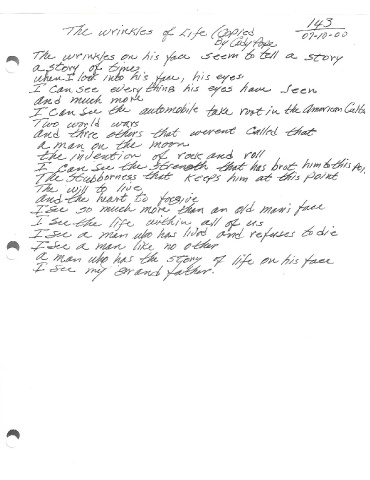 143
The wrinkles of Life (Copied 07-10-00
By Cady Pope
The wrinkles on his face seem to tell a story
a story of times
when I look into his face, his eyes
I can see every thing his eyes have seen
and much more
I can see the automobile take root in the American Cultu
Two world wars
and three others that werent called that
a man on the moon
the invention of rock and roll
I can see the strength that has brot him to this Poi
The stubborness that keeps him at this point
The will to live
and the heart to forgive
I see so much more than an old man's face
I see the life within all of us
I see a man who has lived and refuses to die
I see a man like no other
a man who has the story of life on his face
I see my grand father.